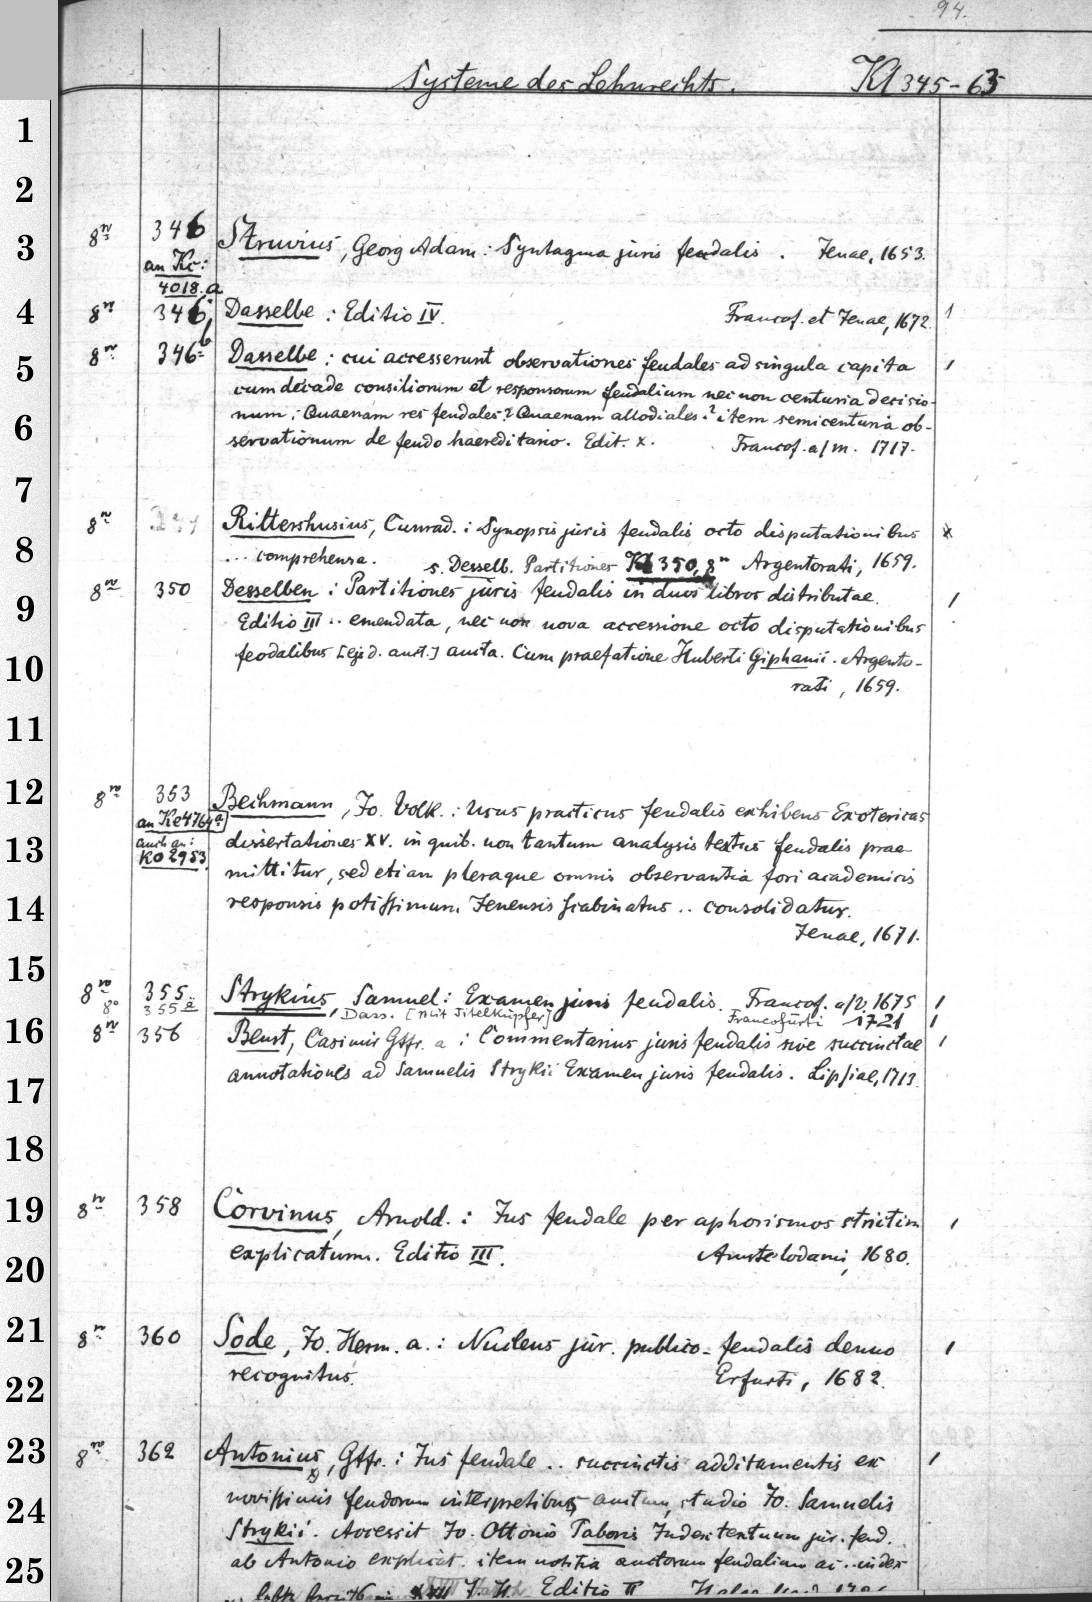 94.
Systeme des Lehnrechts. Kl 345-63
1
2
3 8º 346 Struvius, Georg Adam: Syntagma juris feudalis. Jenae, 1653.
an Kc:
4018.a
4 8º 346 Dasselbe: Editio IV. Francof. et Jenae, 1672. 1
5 8º 346b Dasselbe: cui accesserunt observationes feudales ad singula capita 1
cum decade consiliorum et responsorum feudalium nec non centuria decisio-
6 num: Quaenam res feudales? Quaenam allodiales? item semicenturia ob-
servationum de feudo haereditario. Edit. X. Francof. a/m. 1717.
7
8º Rittershusius, Cunrad.: Synopsis juris feudalis octo disputationibus x
8 ... comprehensa. s. Desselb. Partitiones Kl 350, 8º Argentorati, 1659.
9 8º 350 Desselben: Partitiones juris feudalis in duos libros distributae. 1
Editio III .. emendata, nec non nova accessione octo disputationibus
10 feodalibus [ejud. auct.] aucta. Cum praefatione Huberti Giphanii. Argento-
rati, 1659.
11
12 8º 353 Bechmann, Jo. Volk.: Usus practicus feudalis exhibens Exotericas
an Ke4764a
13 auch an: dissertationes XV. in quib. non tantum analysis textus feudalis prae
Ko 2953 mittitur, sed etiam pleraque omnis observantia fori academicis
14 responsis potissimum Jenensis scabinatus .. consolidatur.
Jenae, 1671.
15
8º 355 Strykius, Samuel: Examen juris feudalis. Francof. a/V. 1675 1
8º 355a Dass. [mit Titelkupfer] Francofurti 1721 1
16 8º 356 Beust, Casimir Gffr. a: Commentarius juris feudalis sive succinctae 1
17 annotationes ad Samuelis Strykii Examen juris feudalis. Lipsiae, 1713.
18
19 8º 358 Corvinus, Arnold.: Jus feudale per aphorismos strictim 1
20 explicatum. Editio III. Amstelodami, 1680.
21 8º 360 Sode, Jo. Herm. a.: Nucleus jur. publico-feudalis denuo 1
22 recognitus. Erfurti, 1682.
23 8º 362 Antonius, Gffr.: Jus feudale .. succinctis additamentis ex 1
24 novissimis feudorum interpretibus auctum, studio Jo. Samuelis
Strykii. Accessit Jo. Ottonis Taboris Index textuum jur. feud.
25 ab Antonio explicat. item notitia auctorum feudalium ac .. index
Editio II